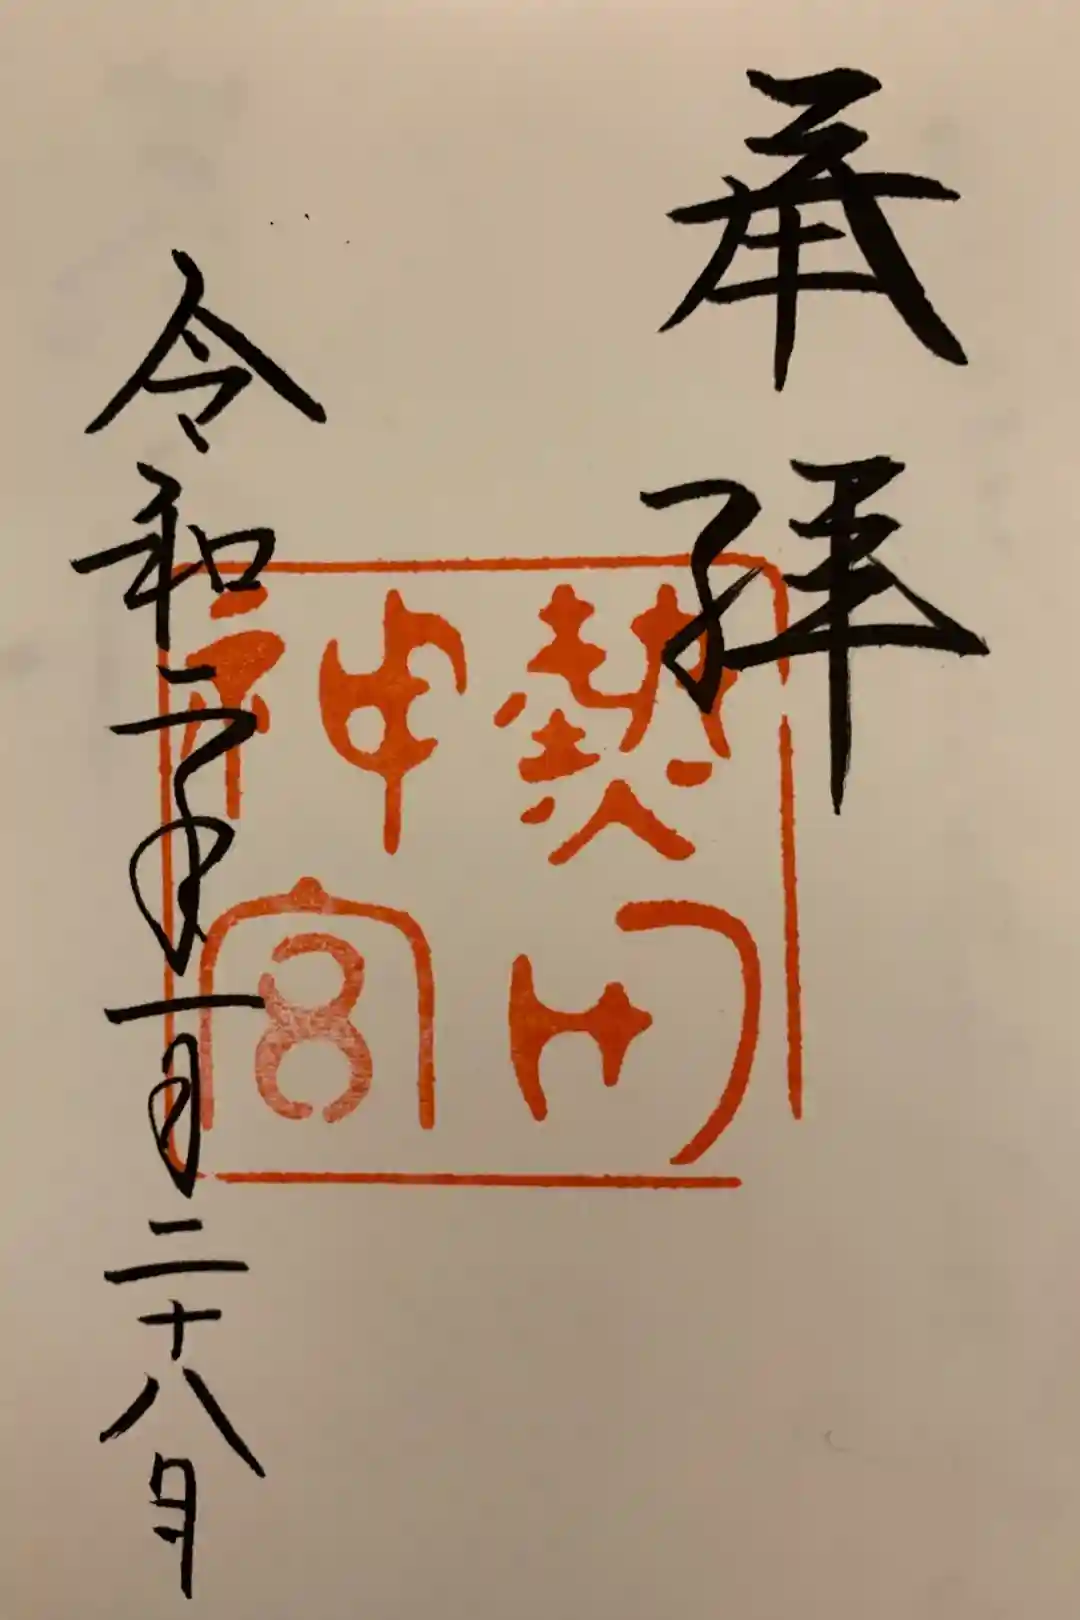 奉拝
熱田
神宮
令和二年一月二十八日